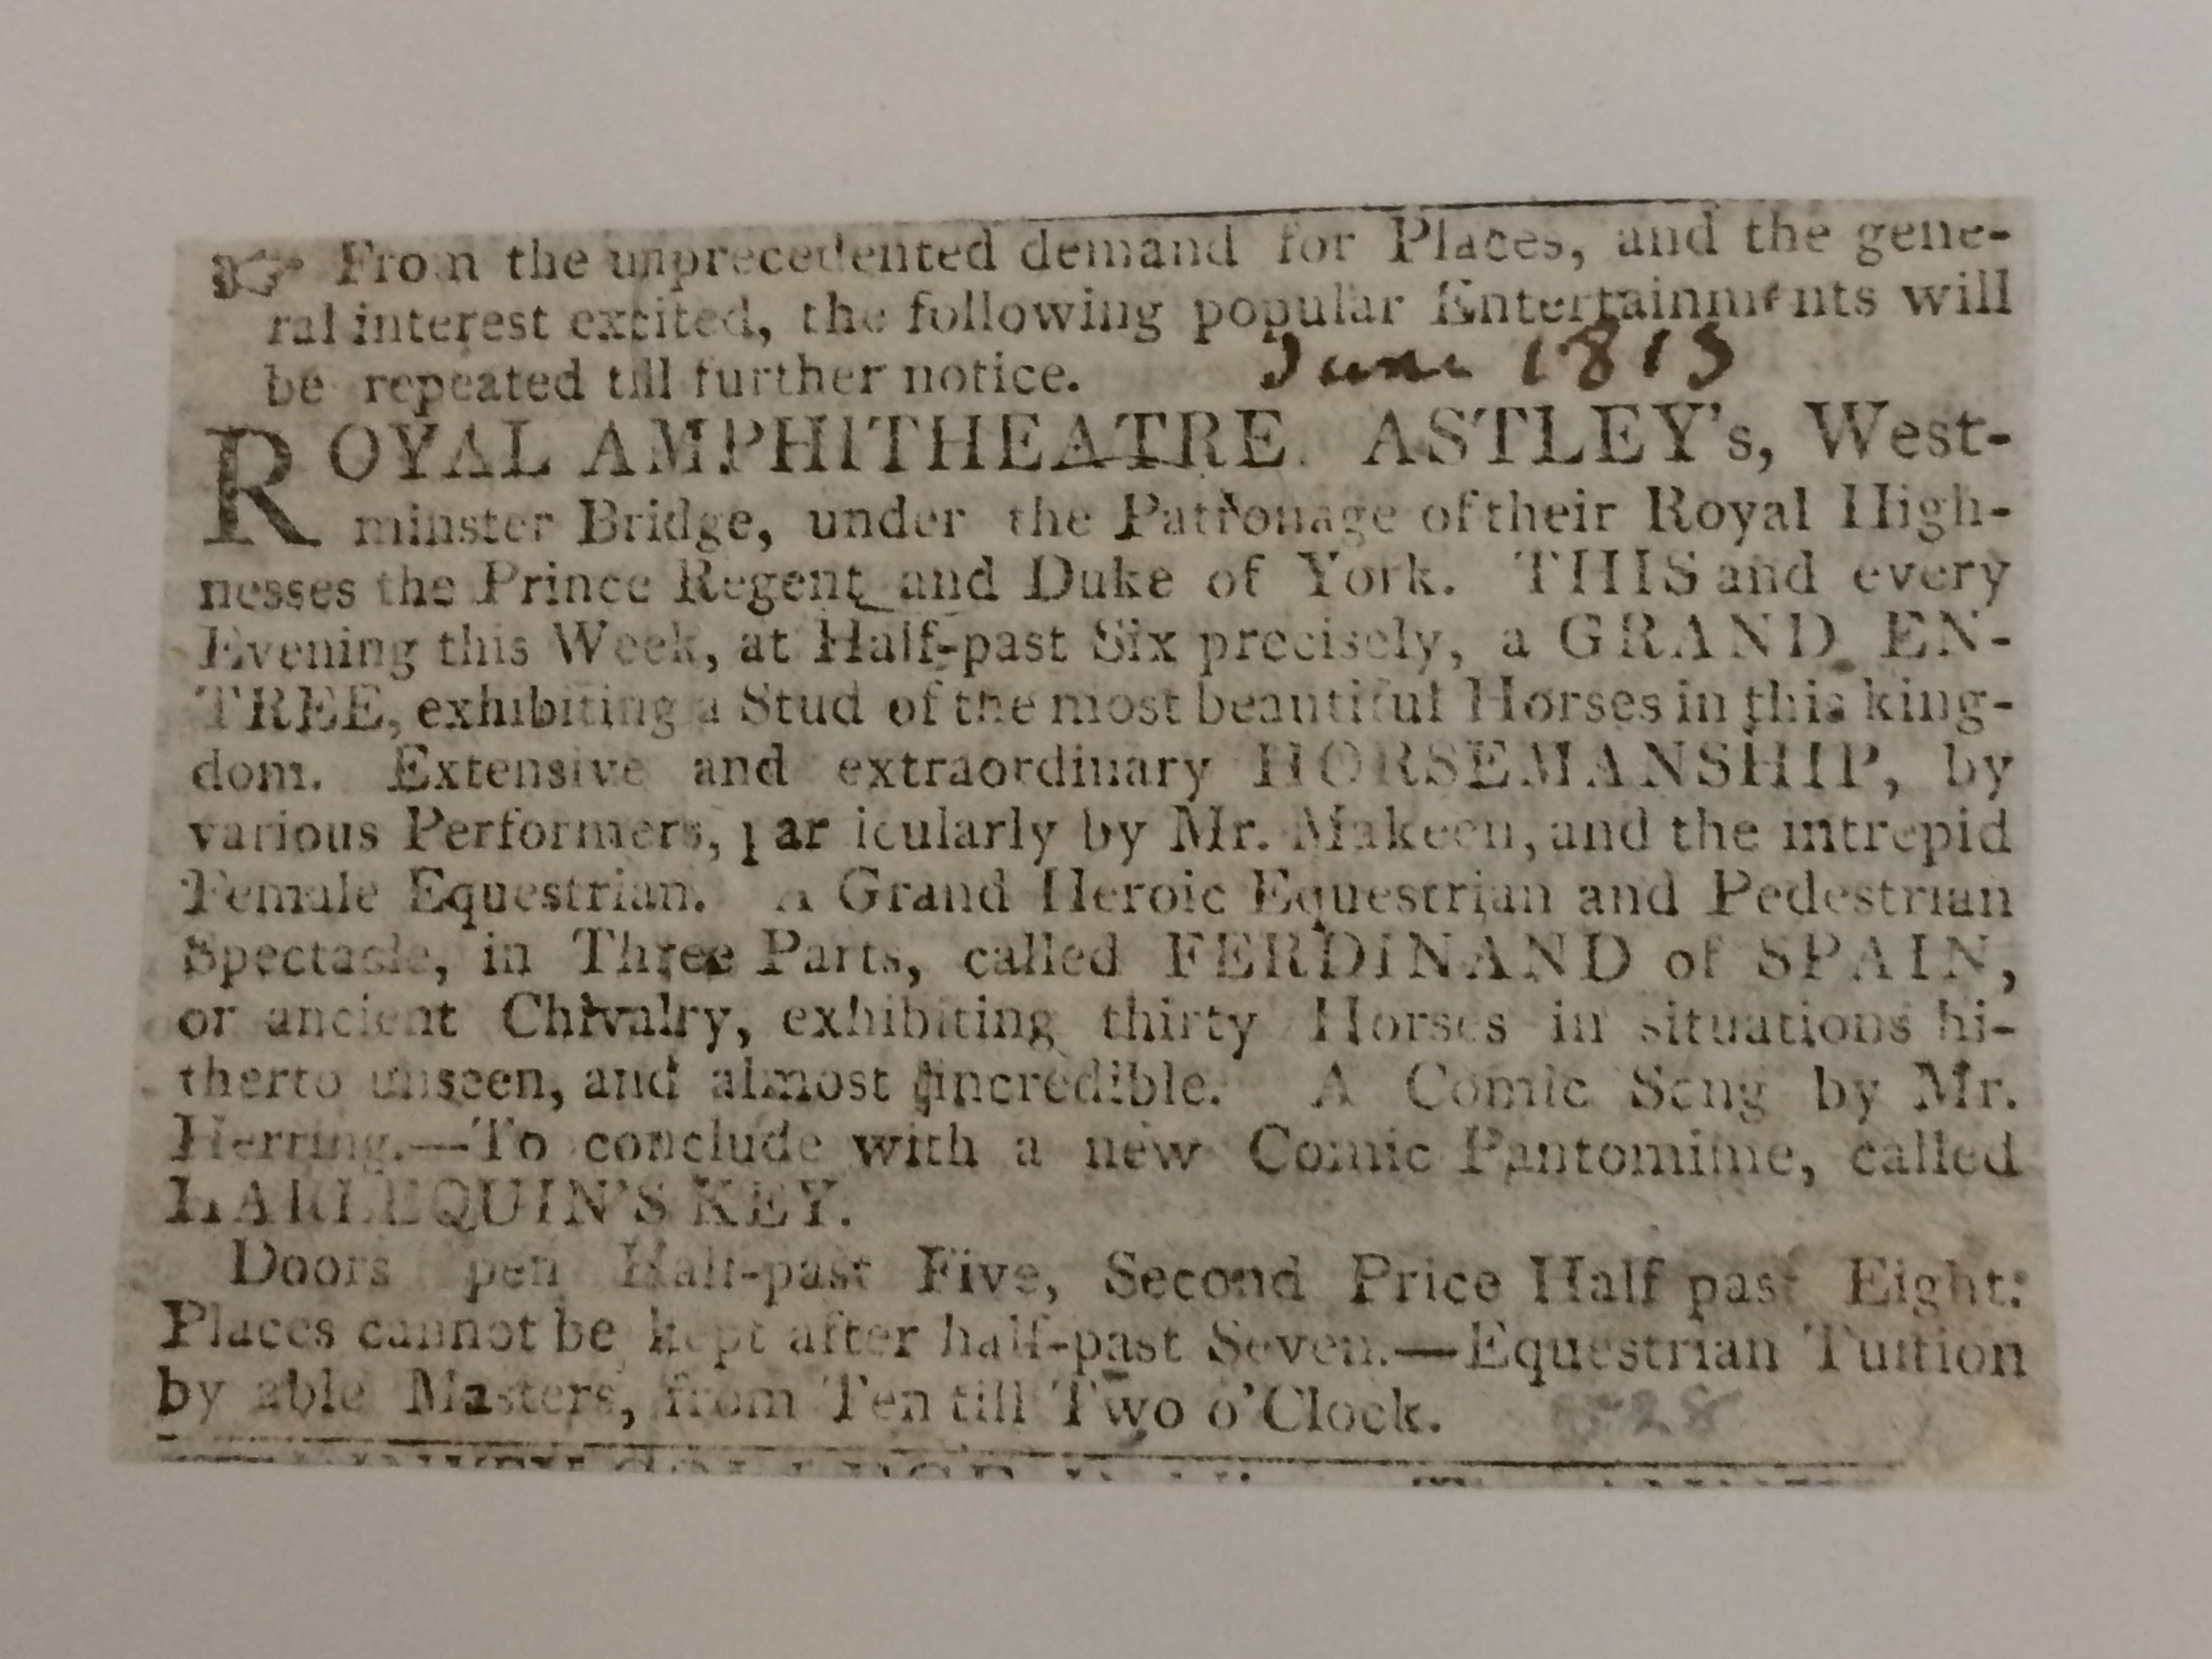 ☞ From the unprecedented demand for Places, and the gene-
ral interest excited, the following popular Entertainments will
be repeated till further notice.
June 1813
ROYAL AMPHITHEATRE. ASTLEY's, West-
minster Bridge, under the Patronage of their Royal High-
nesses the Prince Regent and Duke of York. THIS and every
Evening this Week, at Half-past Six precisely, a GRAND EN-
TREE, exhibiting a Stud of the most beautiful Horses in this king-
dom. Extensive and extraordinary HORSEMANSHIP, by
various Performers, par icularly by Mr. Makeen, and the intrepid
Female Equestrian. A Grand Heroic Equestrian and Pedestrian
Spectacle, in Three Parts, called FERDINAND of SPAIN,
or ancient Chivalry, exhibiting thirty Horses in situations hi-
therto unseen, and almost incredible. A Comic Song by Mr.
Herring.—To conclude with a new Comic Pantomime, called
HARLEQUIN'S KEY.
Doors pen Half-past Five, Second Price Half past Eight:
Places cannot be kept after half-past Seven.—Equestrian Tuition
by able Masters, from Ten till Two o'Clock.